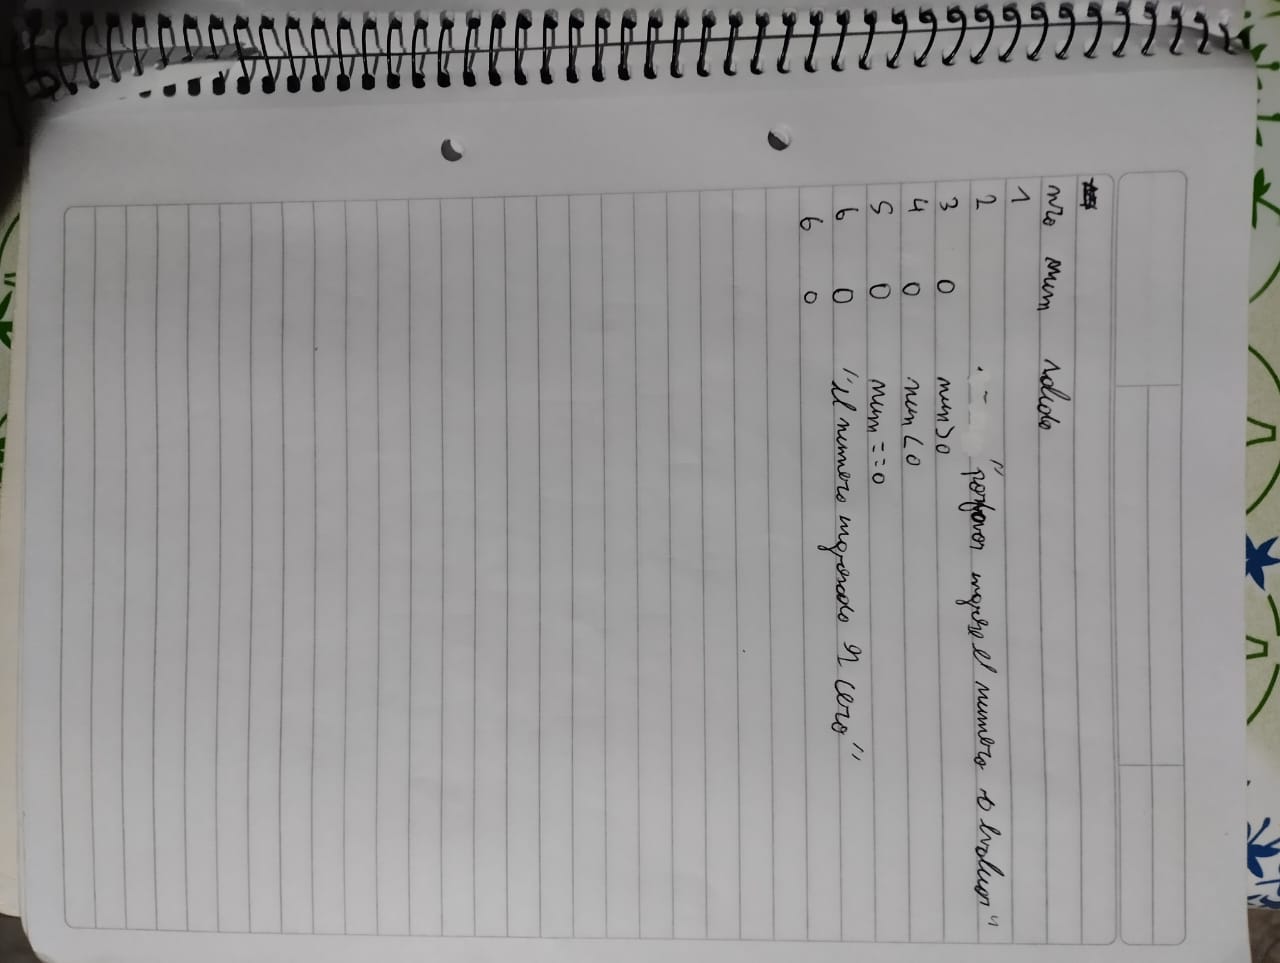 nro num salida
1
2 "porfavor ingrese el numero a evaluar"
3 0 num>0
4 0 num<0
5 0 num==0
6 0 "el numero ingresado es cero"
6 0